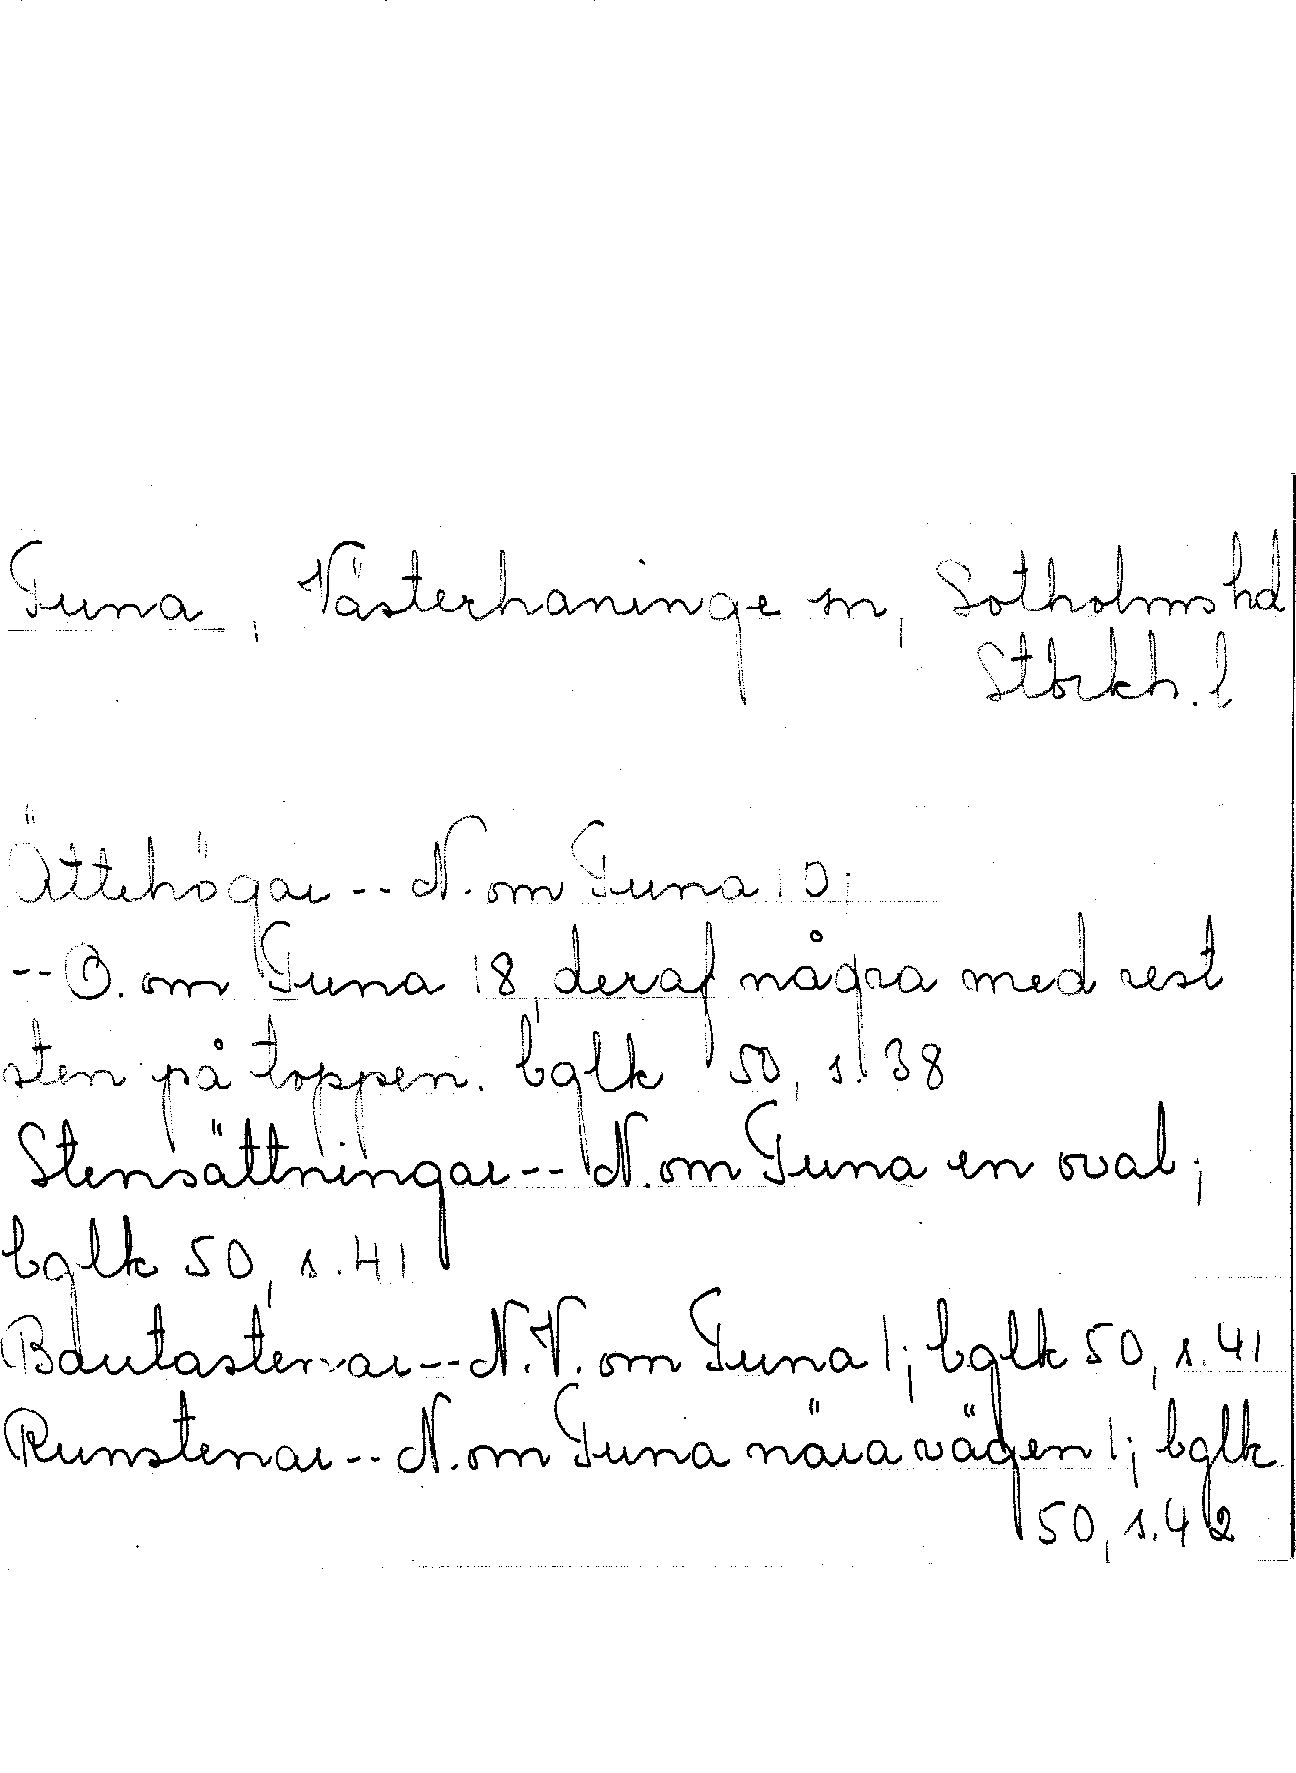 Tuna, Västerhaninge sn, Sotholms hd
Stockh. l.
Ättehögar -- N. om Tuna 10;
-- O. om Tuna 18, deraf några med rest
sten på toppen. bglk 50, s. 38
Stensättningar -- N. om Tuna en oval;
bglk 50, s. 41
Bautastenar -- N.V. om Tuna 1; bglk 50, s. 41
Runstenar -- N. om Tuna nära vägen 1; bglk
50, s. 42